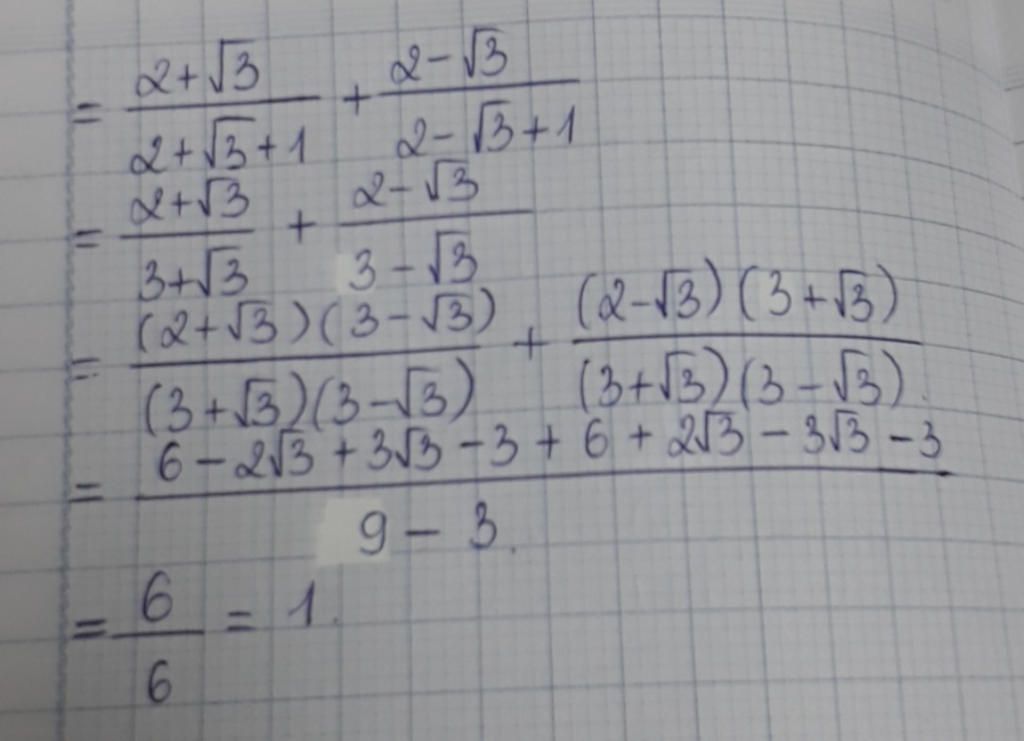 = \frac{2+\sqrt{3}}{2+\sqrt{3}+1} + \frac{2-\sqrt{3}}{2-\sqrt{3}+1}
= \frac{2+\sqrt{3}}{3+\sqrt{3}} + \frac{2-\sqrt{3}}{3-\sqrt{3}}
= \frac{(2+\sqrt{3})(3-\sqrt{3})}{(3+\sqrt{3})(3-\sqrt{3})} + \frac{(2-\sqrt{3})(3+\sqrt{3})}{(3+\sqrt{3})(3-\sqrt{3})}.
= \frac{6-2\sqrt{3}+3\sqrt{3}-3+6+2\sqrt{3}-3\sqrt{3}-3}{9-3.}
= \frac{6}{6} = 1.